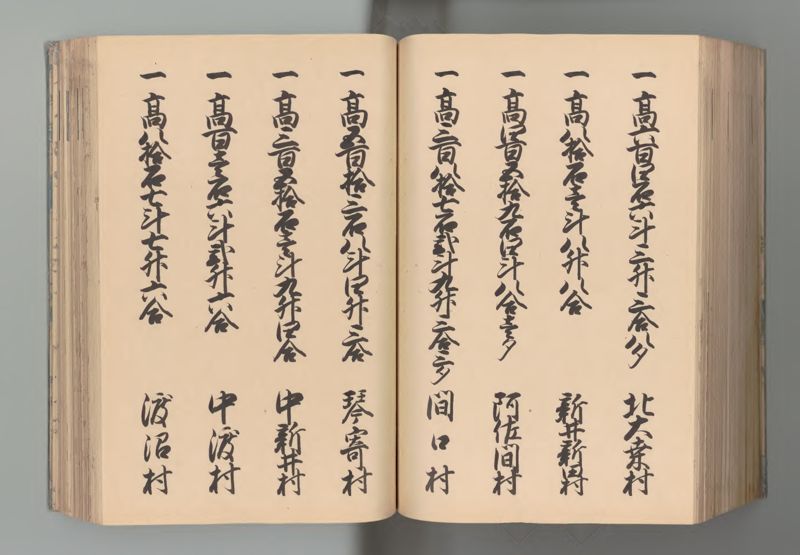 一高六百四石六斗三升三合八夕 北大桑村
一高八拾石壱斗八升八合 新井新田村
一高四百五拾九石四斗八合壱夕 阿佐間村
一高三百八拾七石弐斗九升三合三夕 間口村
一高五百拾三石八斗四升三合 琴寄村
一高三百五拾石壱斗九升四合 中新井村
一高百壱石六斗弐升六合 中渡村
一高八拾石七斗七升六合 渡沼村